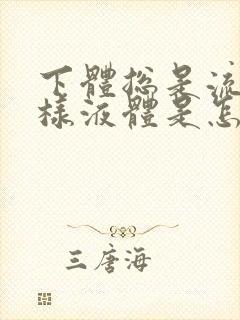 下體總是流
樣液體是怎
三唐海